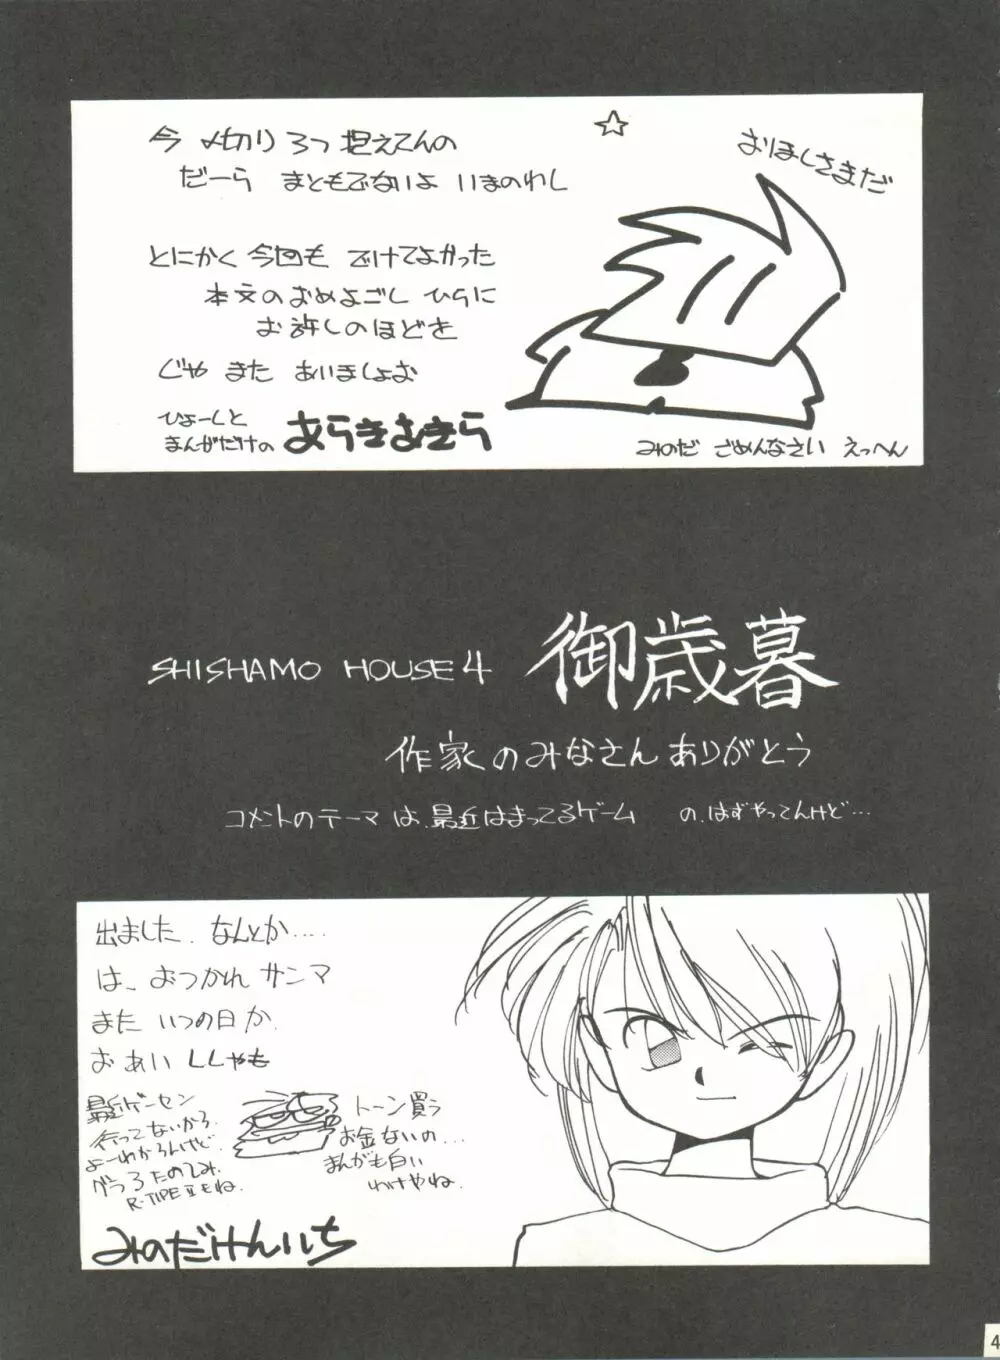 今 〆切り 3つ 抱えてんの
だーら まともでないよ いまのわし
とにかく 今回も でけてよかった
本文のおめよごし ひらに
お許しのほどを
じゃ また あいましょお
ひょーしと
まんがだけの あらきあきら
☆
おりほしさまだ
みのだ ごめんなさい えっへん
SHISHAMO HOUSE 4 御歳暮
作家のみなさん ありがとう
コメントのテーマは、最近はまってるゲーム の、はずやってんけど…
出ました、なんとか.....
は、おつかれ サンマ
また いつの日か、
お あい ししゃも
最近ゲーセン
行ってないから、
よーわからんけど
グラ3たのしみ、
R-TYPE IIもね。
トーン買う
お金ないの...
まんがも白い
わけやね。
みのだけんいち
4